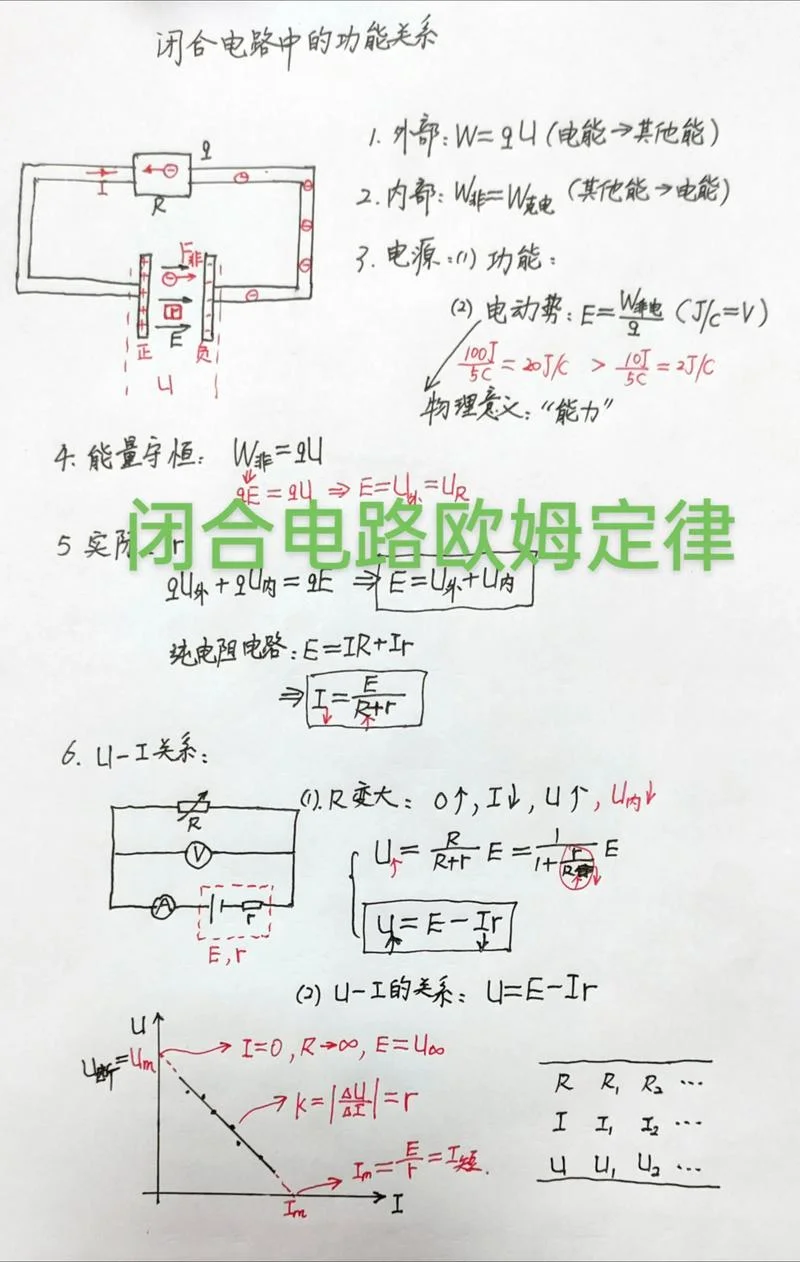 闭合电路中的功能关系
1. 外部: W=qU (电能→其他能)
2. 内部: W非=W克电 (其他能→电能)
3. 电源: (1) 功能:
(2) 电动势: E=W非电/q (J/C=V)
100J/5C=20J/C > 10J/5C=2J/C
物理意义: “能力”
q
I
R
F非
r
E
正 负
U
4. 能量守恒: W非=qU
qE=qU ⇒ E=U外=UR
闭合电路欧姆定律
5 实际: r
qU外+qU内=qE ⇒ E=U外+U内
纯电阻电路: E=IR+Ir
⇒ I↓=E/(R↑+r)
6. U-I关系:
R
V
A
r
E,r
(1). R变大: 0↑, I↓, U↑, U内↓
U↑=R/(R+r) E=1/(1+r/R) E
U=E-Ir
(2) U-I的关系: U=E-Ir
U
U断=Um
I=0, R→∞, E=U∞
k=|ΔU/ΔI|=r
Im=E/r=I短.
Im
I
R R₁ R₂ ···
I I₁ I₂ ···
U U₁ U₂ ···